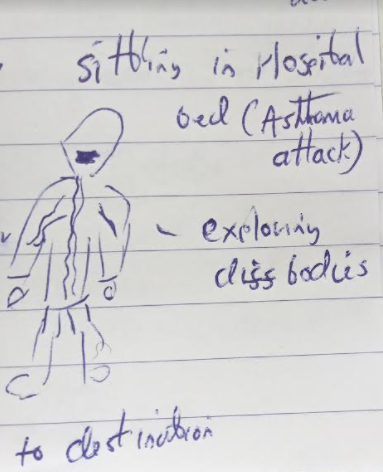 sitting in Hospital
bed (Asthma
attack)
- exploring
diss bodies
to destination